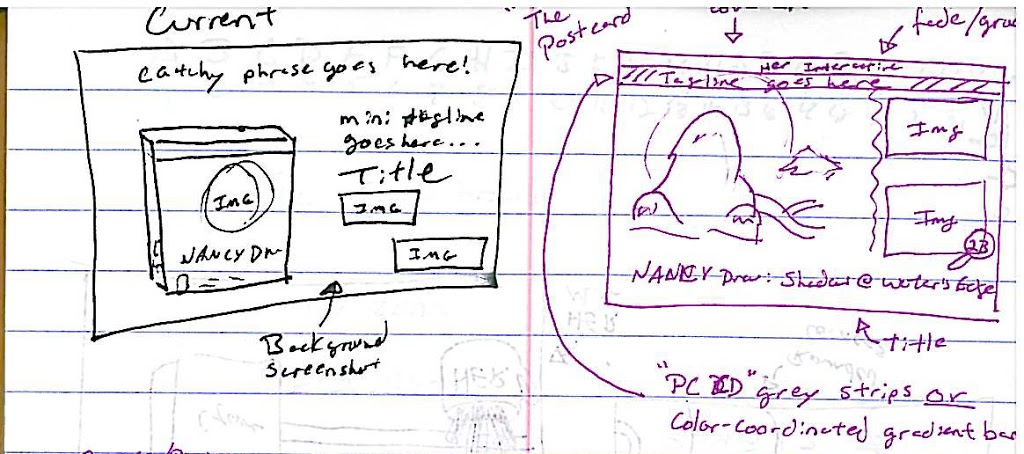 Current
Catchy phrase goes here!
mini tagline
goes here...
Title
Img
Img
Img
NANCY Drew
Background
Screenshot
"The
Postcard
fade/grad
Her Interactive
Tagline goes here
Img
Img
23
NANCY Drew: Shadow @ Water's Edge
Title
"PC CD" grey strips or
Color-coordinated gradient bar